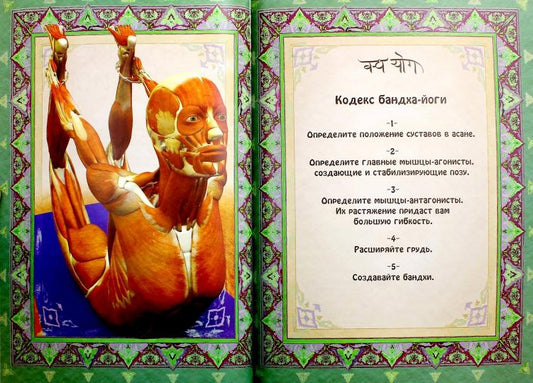 बन्ध योग
Кодекс бандха-йоги
-1-
Определите положение суставов в асане.
-2-
Определите главные мышцы-агонисты,
создающие и стабилизирующие позу.
-3-
Определите мышцы-антагонисты.
Их растяжение придаст вам
большую гибкость.
-4-
Расширяйте грудь.
-5-
Создавайте бандхи.